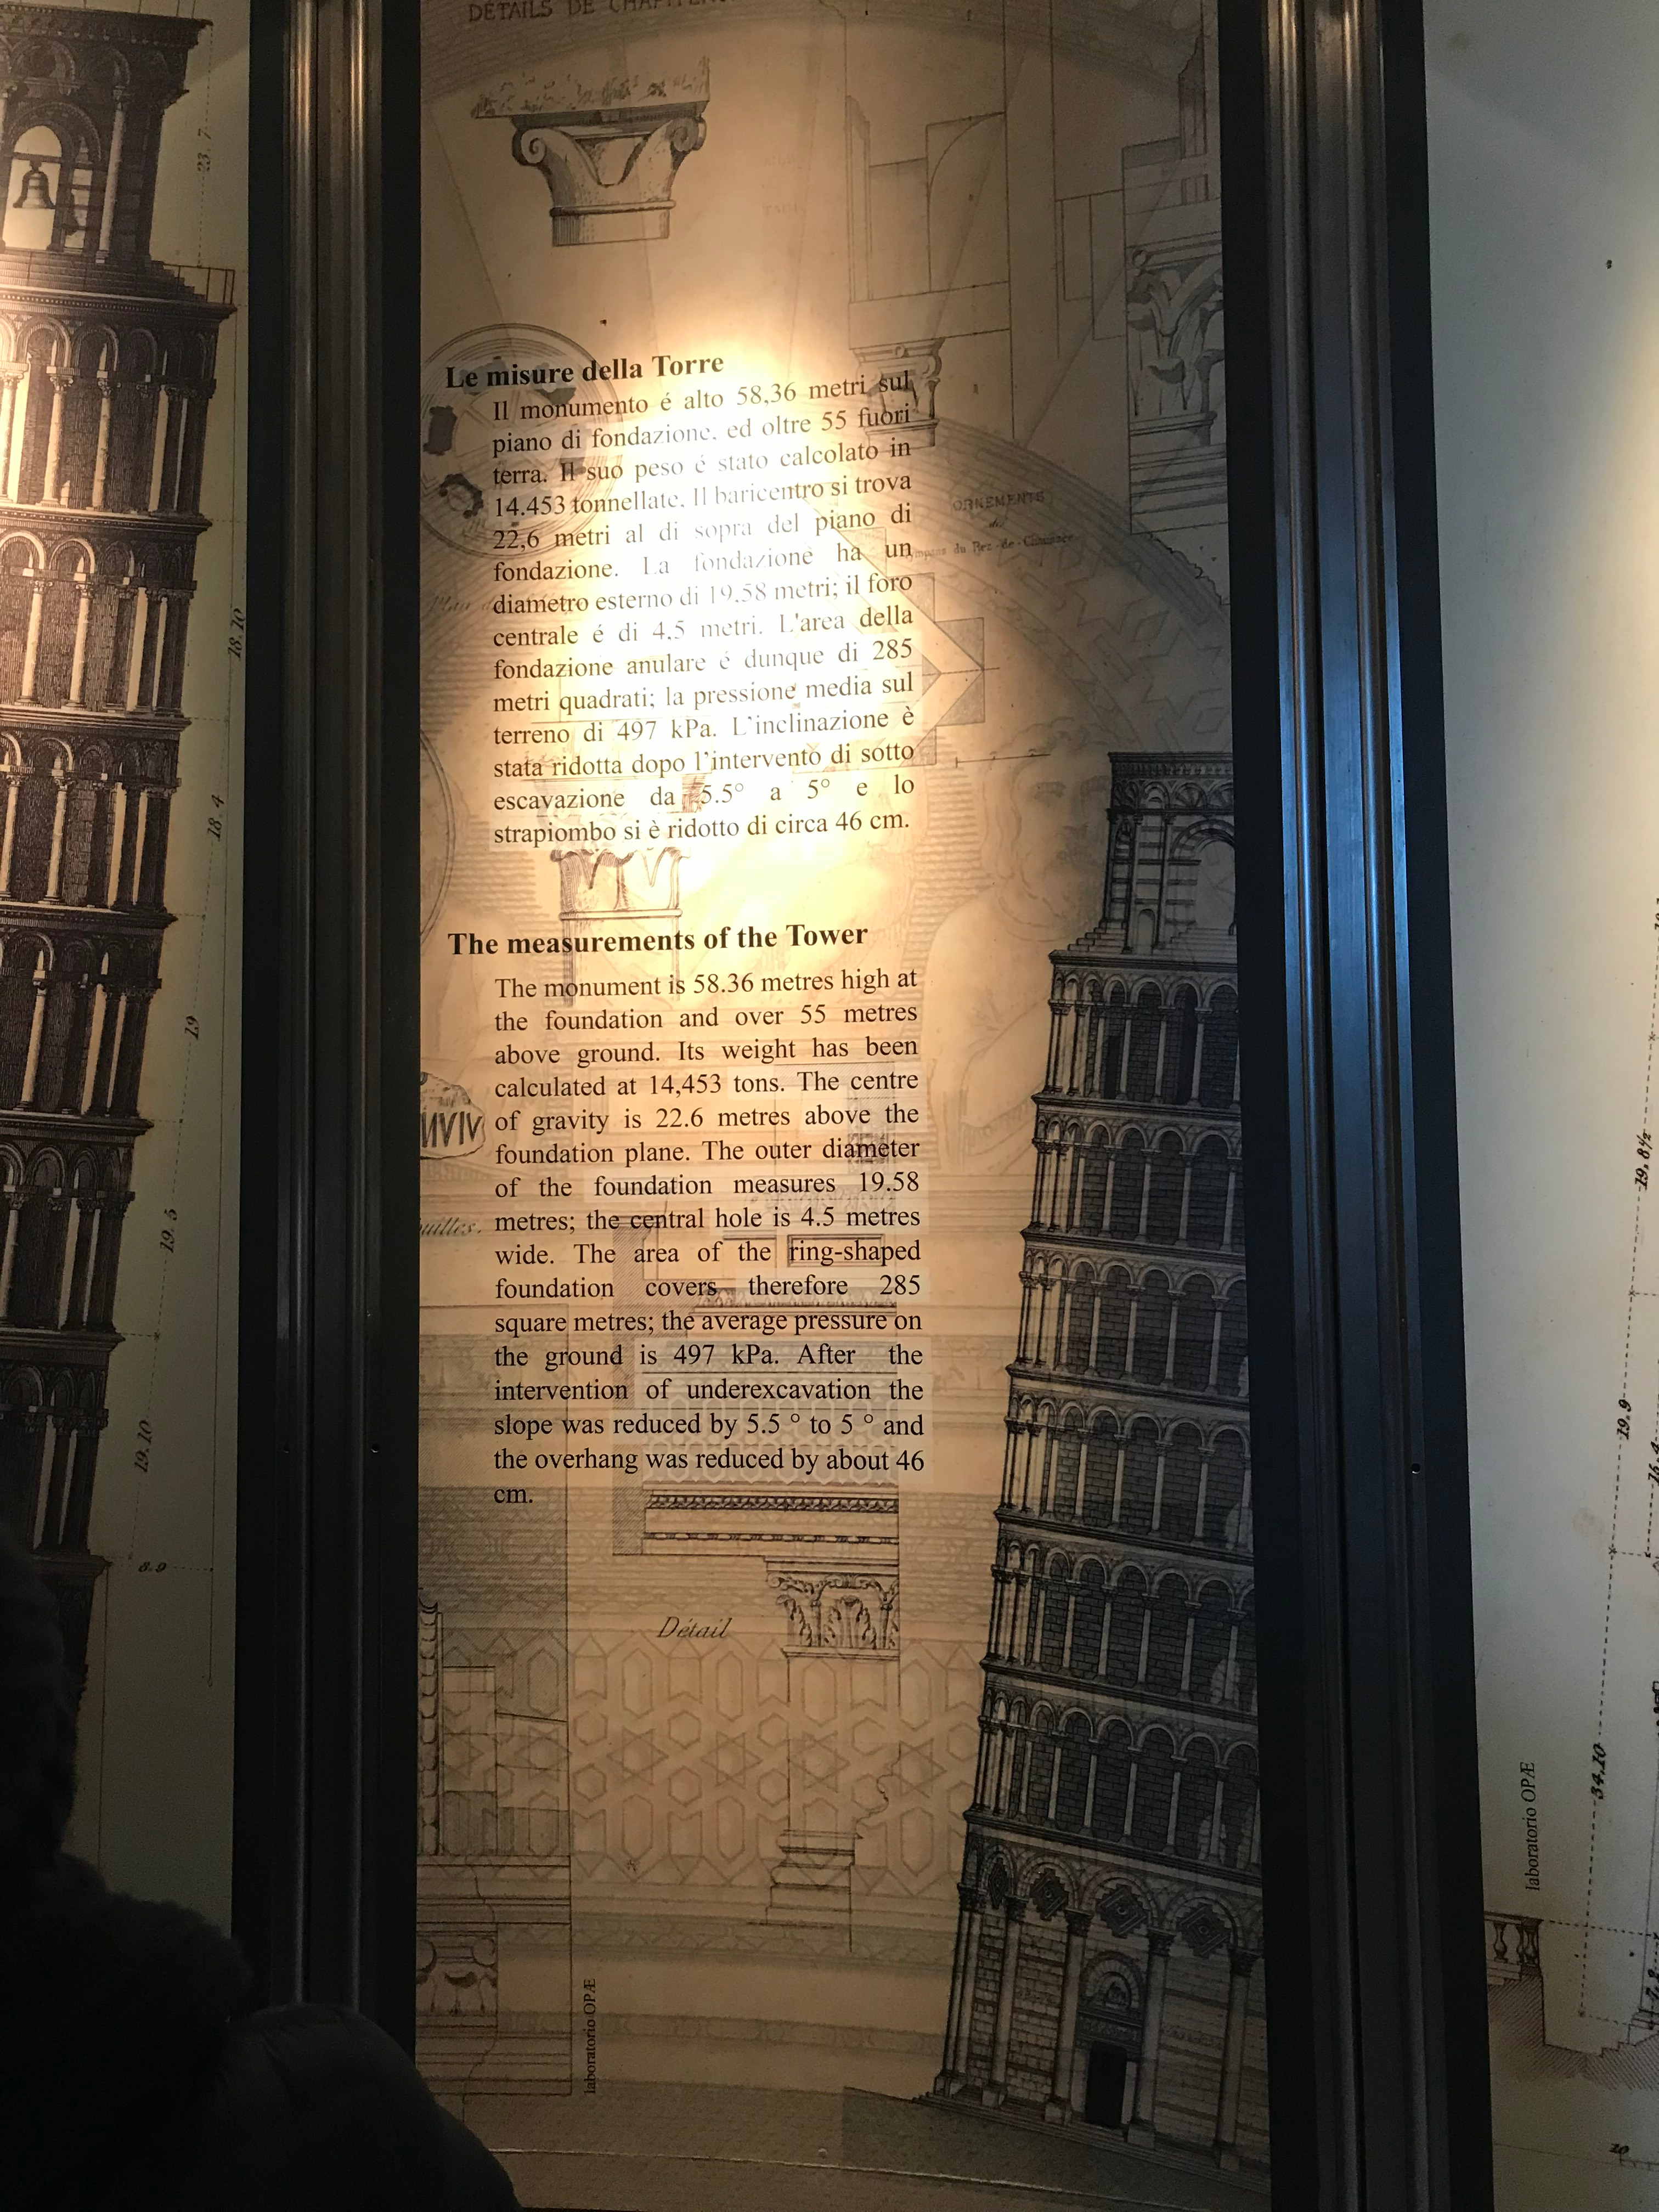 DÉTAILS DE
Le misure della Torre
Il monumento é alto 58,36 metri sul
piano di fondazione. ed oltre 55 fuori
terra. Il suo peso é stato calcolato in
14.453 tonnellate. Il baricentro si trova
22,6 metri al di sopra del piano di
fondazione. La fondazione ha un
diametro esterno di 19.58 metri; il foro
centrale é di 4.5 metri. L'area della
fondazione anulare é dunque di 285
metri quadrati; la pressione media sul
terreno di 497 kPa. L'inclinazione è
stata ridotta dopo l'intervento di sotto
escavazione da 5.5° a 5° e lo
strapiombo si è ridotto di circa 46 cm.
The measurements of the Tower
The monument is 58.36 metres high at
the foundation and over 55 metres
above ground. Its weight has been
calculated at 14,453 tons. The centre
of gravity is 22.6 metres above the
foundation plane. The outer diameter
of the foundation measures 19.58
metres; the central hole is 4.5 metres
wide. The area of the ring-shaped
foundation covers therefore 285
square metres; the average pressure on
the ground is 497 kPa. After the
intervention of underexcavation the
slope was reduced by 5.5 ° to 5 ° and
the overhang was reduced by about 46
cm.
ORNEMENTS
du Rez-de-Chaussée
Détail
laboratorio OPÆ
23.7
18.10
18.4
19
19.5
19.10
8.9
19.8½
19.9
34.10
laboratorio OPÆ